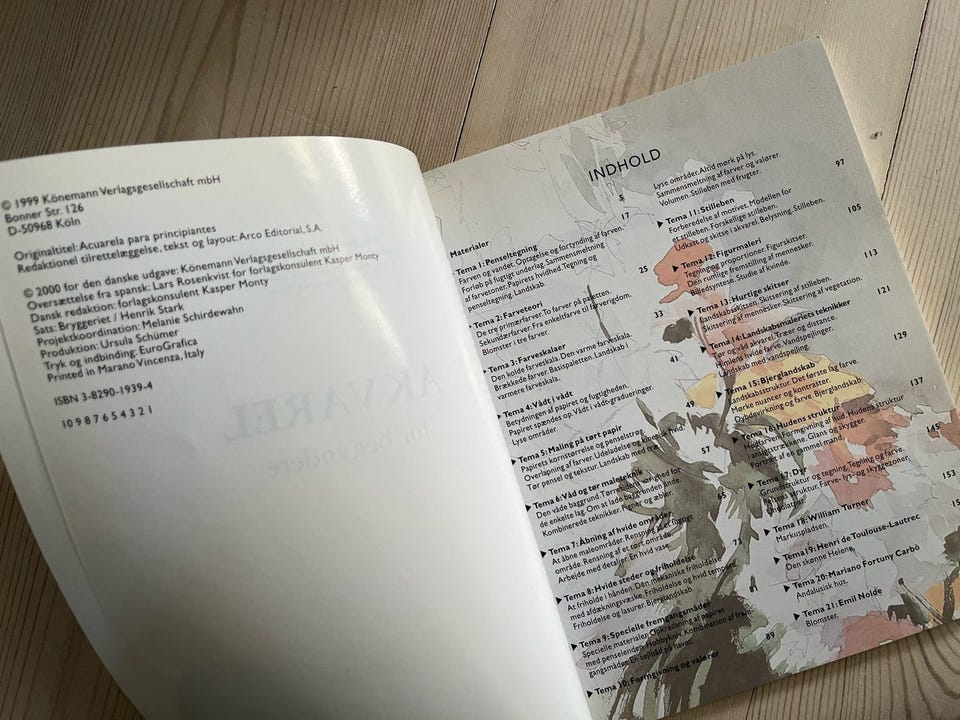 © 1999 Könemann Verlagsgesellschaft mbH
Bonner Str. 126
D-50968 Köln
Originaltitel: Acuarela para principiantes
Redaktionel tilrettelæggelse, tekst og layout: Arco Editorial, S.A.
© 2000 for den danske udgave: Könemann Verlagsgesellschaft mbH
Oversættelse fra spansk: Lars Rosenkvist for forlagskonsulent Kasper Monty
Dansk redaktion: forlagskonsulent Kasper Monty
Sats: Bryggeriet / Henrik Stark
Projektkoordination: Melanie Schirdewahn
Produktion: Ursula Schümer
Tryk og indbinding: EuroGrafica
Printed in Marano Vincenza, Italy
ISBN 3-8290-1939-4
10 9 8 7 6 5 4 3 2 1
INDHOLD
Materialer 5
Tema 1: Penseltegning 17
Farven og vandet. Optagelse og fortynding af farven.
Forløb på fugtigt underlag. Sammensmeltning
af farvetoner. Papirets hvidhed. Tegning og
penseltegning. Landskab.
Tema 2: Farveteori 25
De tre primærfarver. To farver på paletten.
Sekundærfarver. Fra enkeltfarve til farverigdom.
Blomster i tre farver.
Tema 3: Farveskalaer 33
Den kolde farveskala. Den varme farveskala.
Brækkede farver. Basispaletten. Landskab i
varmere farveskala.
Tema 4: Vådt i vådt 41
Betydningen af papiret og fugtigheden.
Papiret spændes op. Vådt i vådt-gradueringer.
Lyse områder.
Tema 5: Maling på tørt papir 49
Papirets kornstørrelse og penselstrøg.
Overlapning af farver. Udeladelse og
Tør pensel og tekstur. Landskab med træ
Tema 6: Våd og tør maleteknik 57
Den våde baggrund. Tørretidens varighed for
de enkelte lag. Om at lade baggrunden ånde.
Kombinerede teknikker. Pærer og æbler.
Tema 7: Åbning af hvide områder 65
At åbne maleområder. Rensning af et fugtigt
område. Rensning af et tørt område.
Arbejde med detaljer. En hvid vase.
Tema 8: Hvide steder og friholdelse 73
At friholde i hånden. Den mekaniske friholdelse
med afdækningvæske. Friholdelse og hvid tempera.
Friholdelse og lasurer. Bjerglandskab.
Tema 9: Specielle fremgangsmåder 81
Specielle materialer. Opkradsning af papiret
med penselenden. Hobbykniv. Kombination af frem-
gangsmåder. En sejlbåd på havet.
Tema 10: Formgivning og valører 89
Lyse områder. Altid mørk på lys.
Sammensmeltning af farver og valører.
Volumen. Stilleben med frugter.
Tema 11: Stilleben 97
Forberedelse af motivet. Modellen for
et stilleben. Forskellige stilleben.
Udkast og skitse i akvarel. Belysning. Stilleben.
Tema 12: Figurmaleri 105
Tegning og proportioner. Figurskitser.
Den rumlige fremstilling af mennesker.
Billedsyntese. Studie af kvinde.
Tema 13: Hurtige skitser 113
Landskabsskitser. Skitsering af stilleben.
Skitsering af mennesker. Skitsering af vegetation.
Tema 14: Landskabsmaleriets teknikker 121
Tør og våd akvarel. Træer og distance.
Himlens hvide farve. Vandspejlinger.
Landskab med vandspejling.
Tema 15: Bjerglandskab 129
Landskabsstruktur. Det første lag farve.
Mørke nuancer og kontraster.
Dybdevirkning og farve. Bjerglandskab.
Tema 16: Hudens struktur 137
Hudfarven. Formgivning af hud. Hudens struktur
i ansigtstrækkene. Glans og skygger.
Portræt af en gammel mand.
Tema 17: Dyr 145
Grundstruktur og tegning. Tegning og farve.
Pelsens struktur. Farve- lyt- og skyggezoner.
Tema 18: William Turner 153
Markuspladsen.
Tema 19: Henri de Toulouse-Lautrec
Den skønne Helene.
Tema 20: Mariano Fortuny Carbó
Andalusisk hus.
Tema 21: Emil Nolde
Blomster.